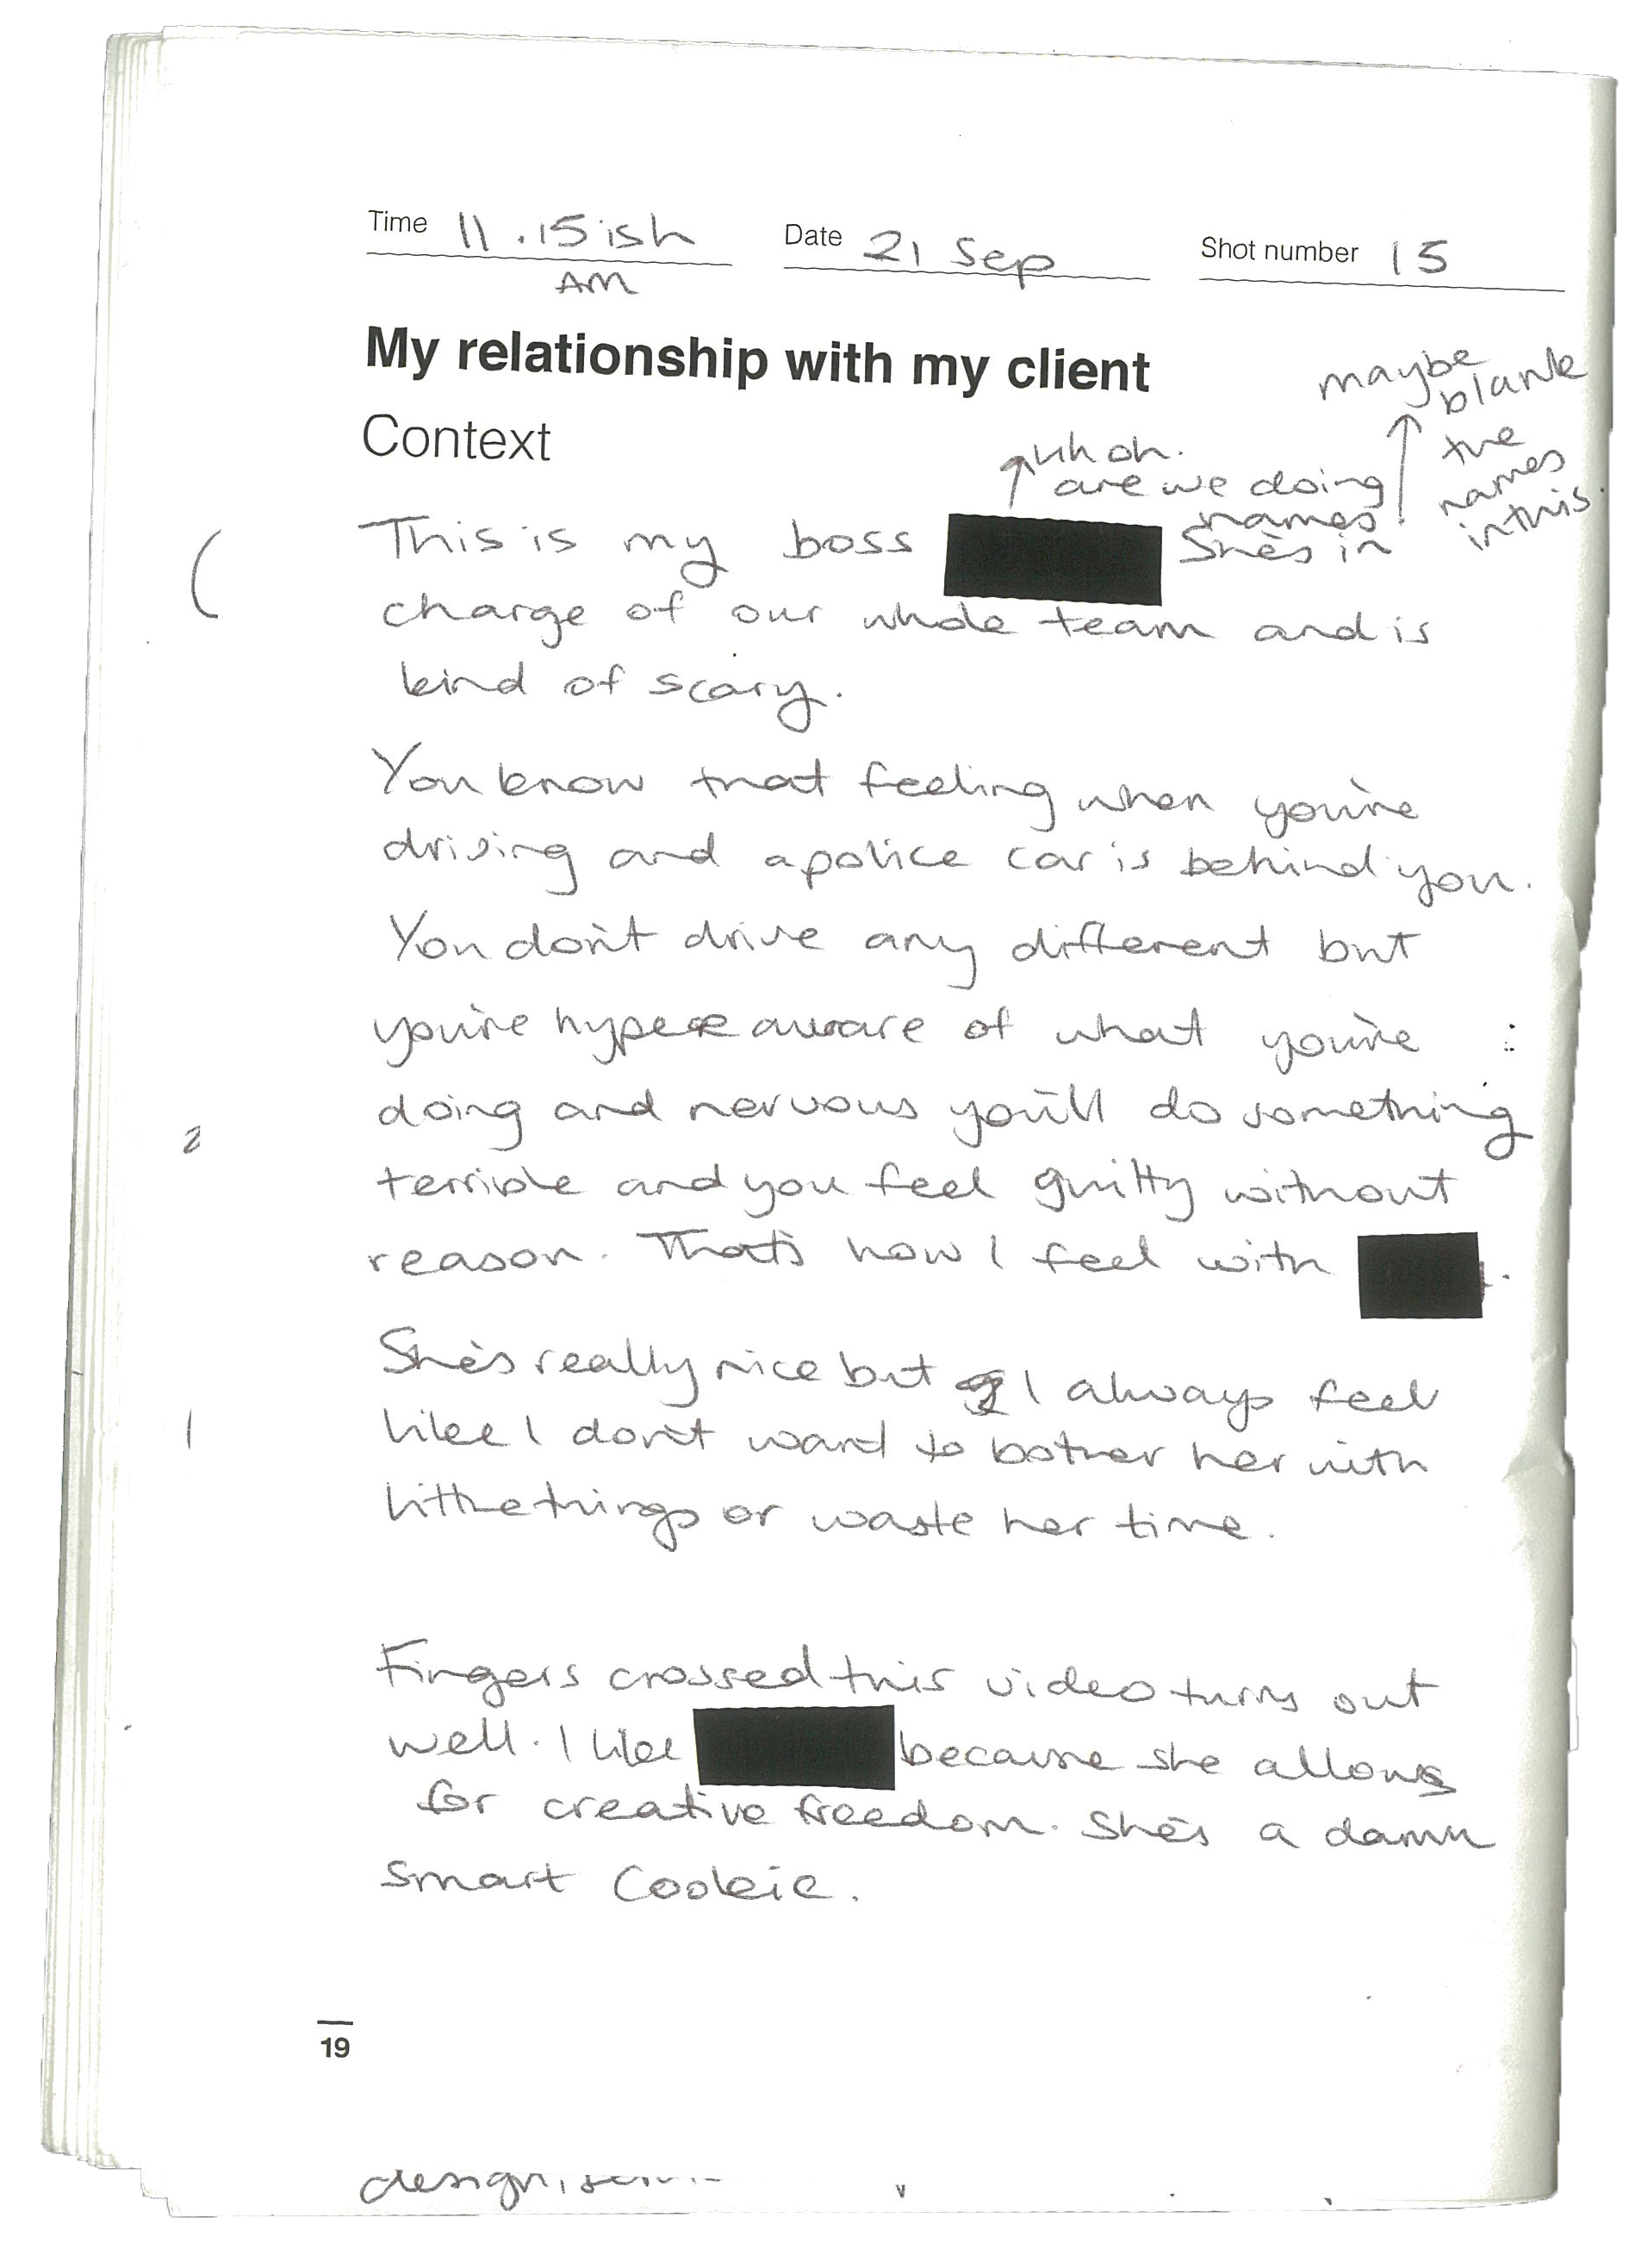 Time 11.15ish Date 21 Sep Shot number 15
AM
My relationship with my client
Context
uh oh.
are we doing
names
maybe
blank
the
names
in this.
This is my boss She's in
charge of our whole team and is
kind of scary.
You know that feeling when you're
driving and a police car is behind you.
You don't drive any different but
you're hyper aware of what you're
doing and nervous you'll do something
terrible and you feel guilty without
reason. That's how I feel with .
She's really nice but I always feel
like I don't want to bother her with
little things or waste her time.
Fingers crossed this video turns out
well. I like because she allows
for creative freedom. She's a damn
smart cookie.
19